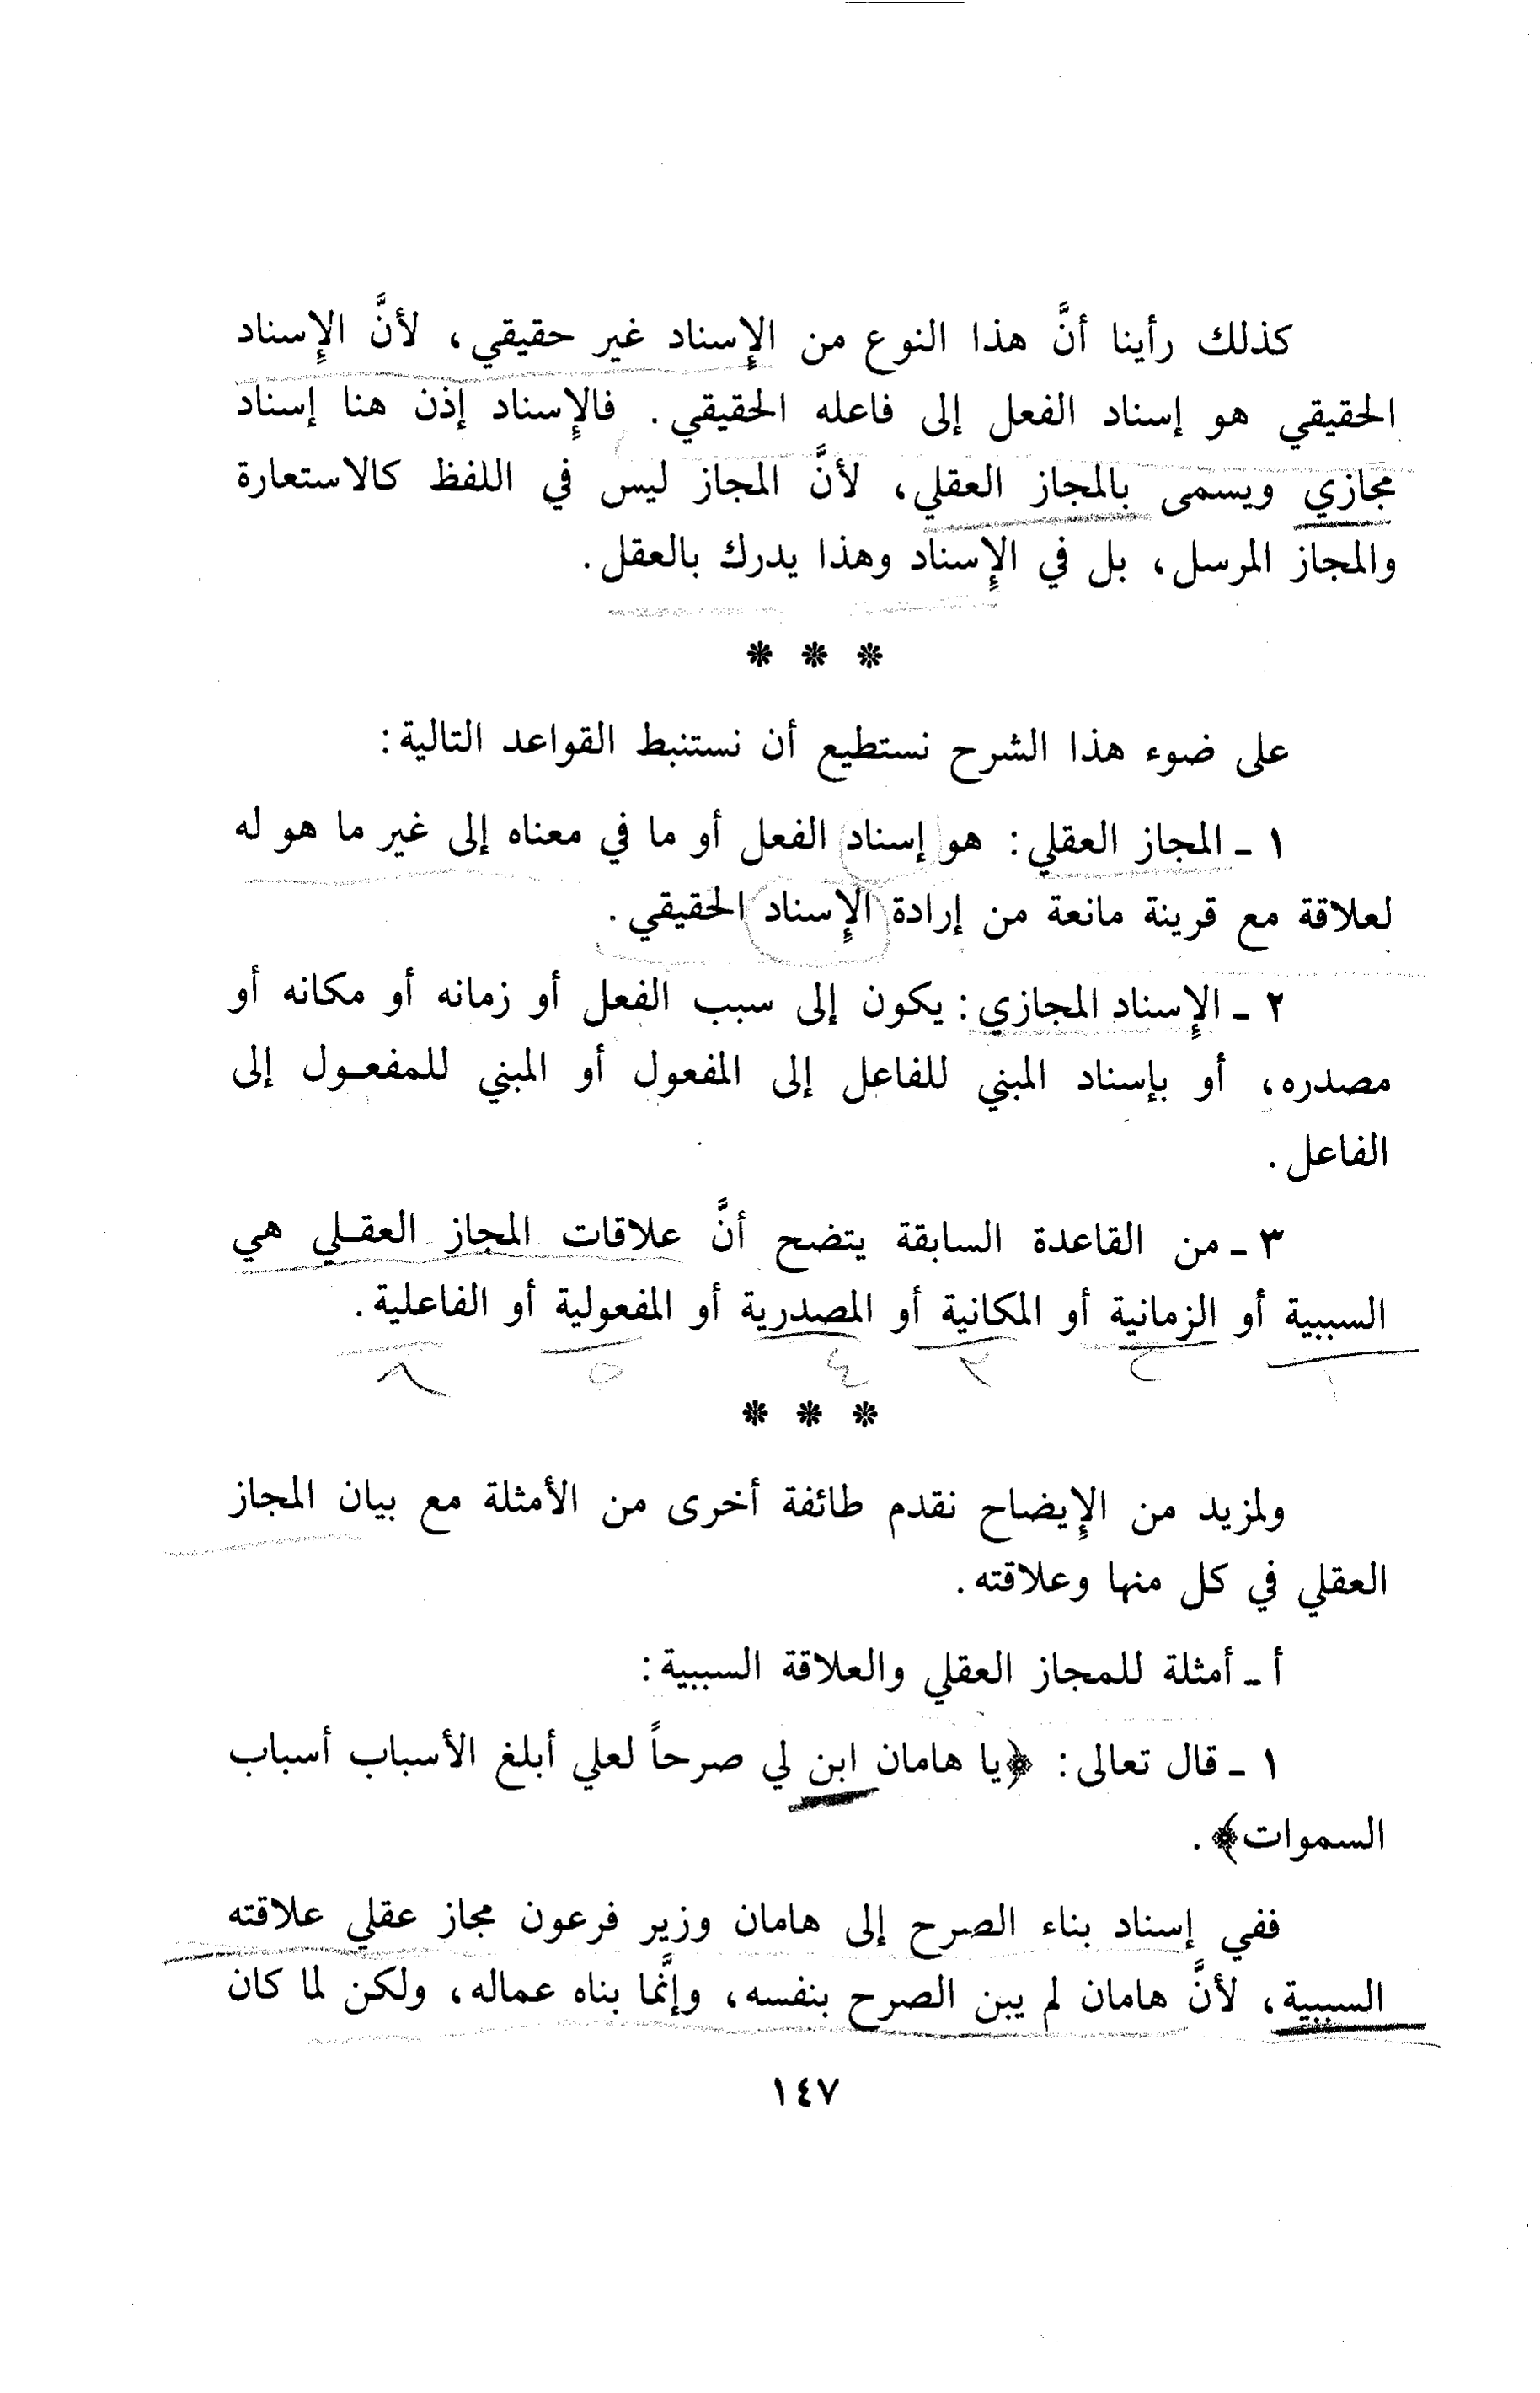 كذلك رأينا أنَّ هذا النوع من الإسناد غير حقيقي، لأنَّ الإسناد
الحقيقي هو إسناد الفعل إلى فاعله الحقيقي. فالإسناد إذن هنا إسناد
مجازي ويسمى بالمجاز العقلي، لأنَّ المجاز ليس في اللفظ كالاستعارة
والمجاز المرسل، بل في الإسناد وهذا يدرك بالعقل.
* * *
على ضوء هذا الشرح نستطيع أن نستنبط القواعد التالية:
١ - المجاز العقلي: هو إسناد الفعل أو ما في معناه إلى غير ما هو له
لعلاقة مع قرينة مانعة من إرادة الإسناد الحقيقي.
٢ - الإسناد المجازي: يكون إلى سبب الفعل أو زمانه أو مكانه أو
مصدره، أو بإسناد المبني للفاعل إلى المفعول أو المبني للمفعـول إلى
الفاعل.
٣ - من القاعدة السابقة يتضح أنَّ علاقات المجاز العقـلي هي
السببية أو الزمانية أو المكانية أو المصدرية أو المفعولية أو الفاعلية.
١ ٢ ٣ ٤ ٥ ٦
* * *
ولمزيد من الإيضاح نقدم طائفة أخرى من الأمثلة مع بيان المجاز
العقلي في كل منها وعلاقته.
أ - أمثلة للمجاز العقلي والعلاقة السببية:
١ - قال تعالى: ﴿يا هامان ابن لي صرحاً لعلي أبلغ الأسباب أسباب
السموات﴾.
ففي إسناد بناء الصرح إلى هامان وزير فرعون مجاز عقلي علاقته
السببية، لأنَّ هامان لم يبن الصرح بنفسه، وإنَّما بناه عماله، ولكن لما كان
١٤٧